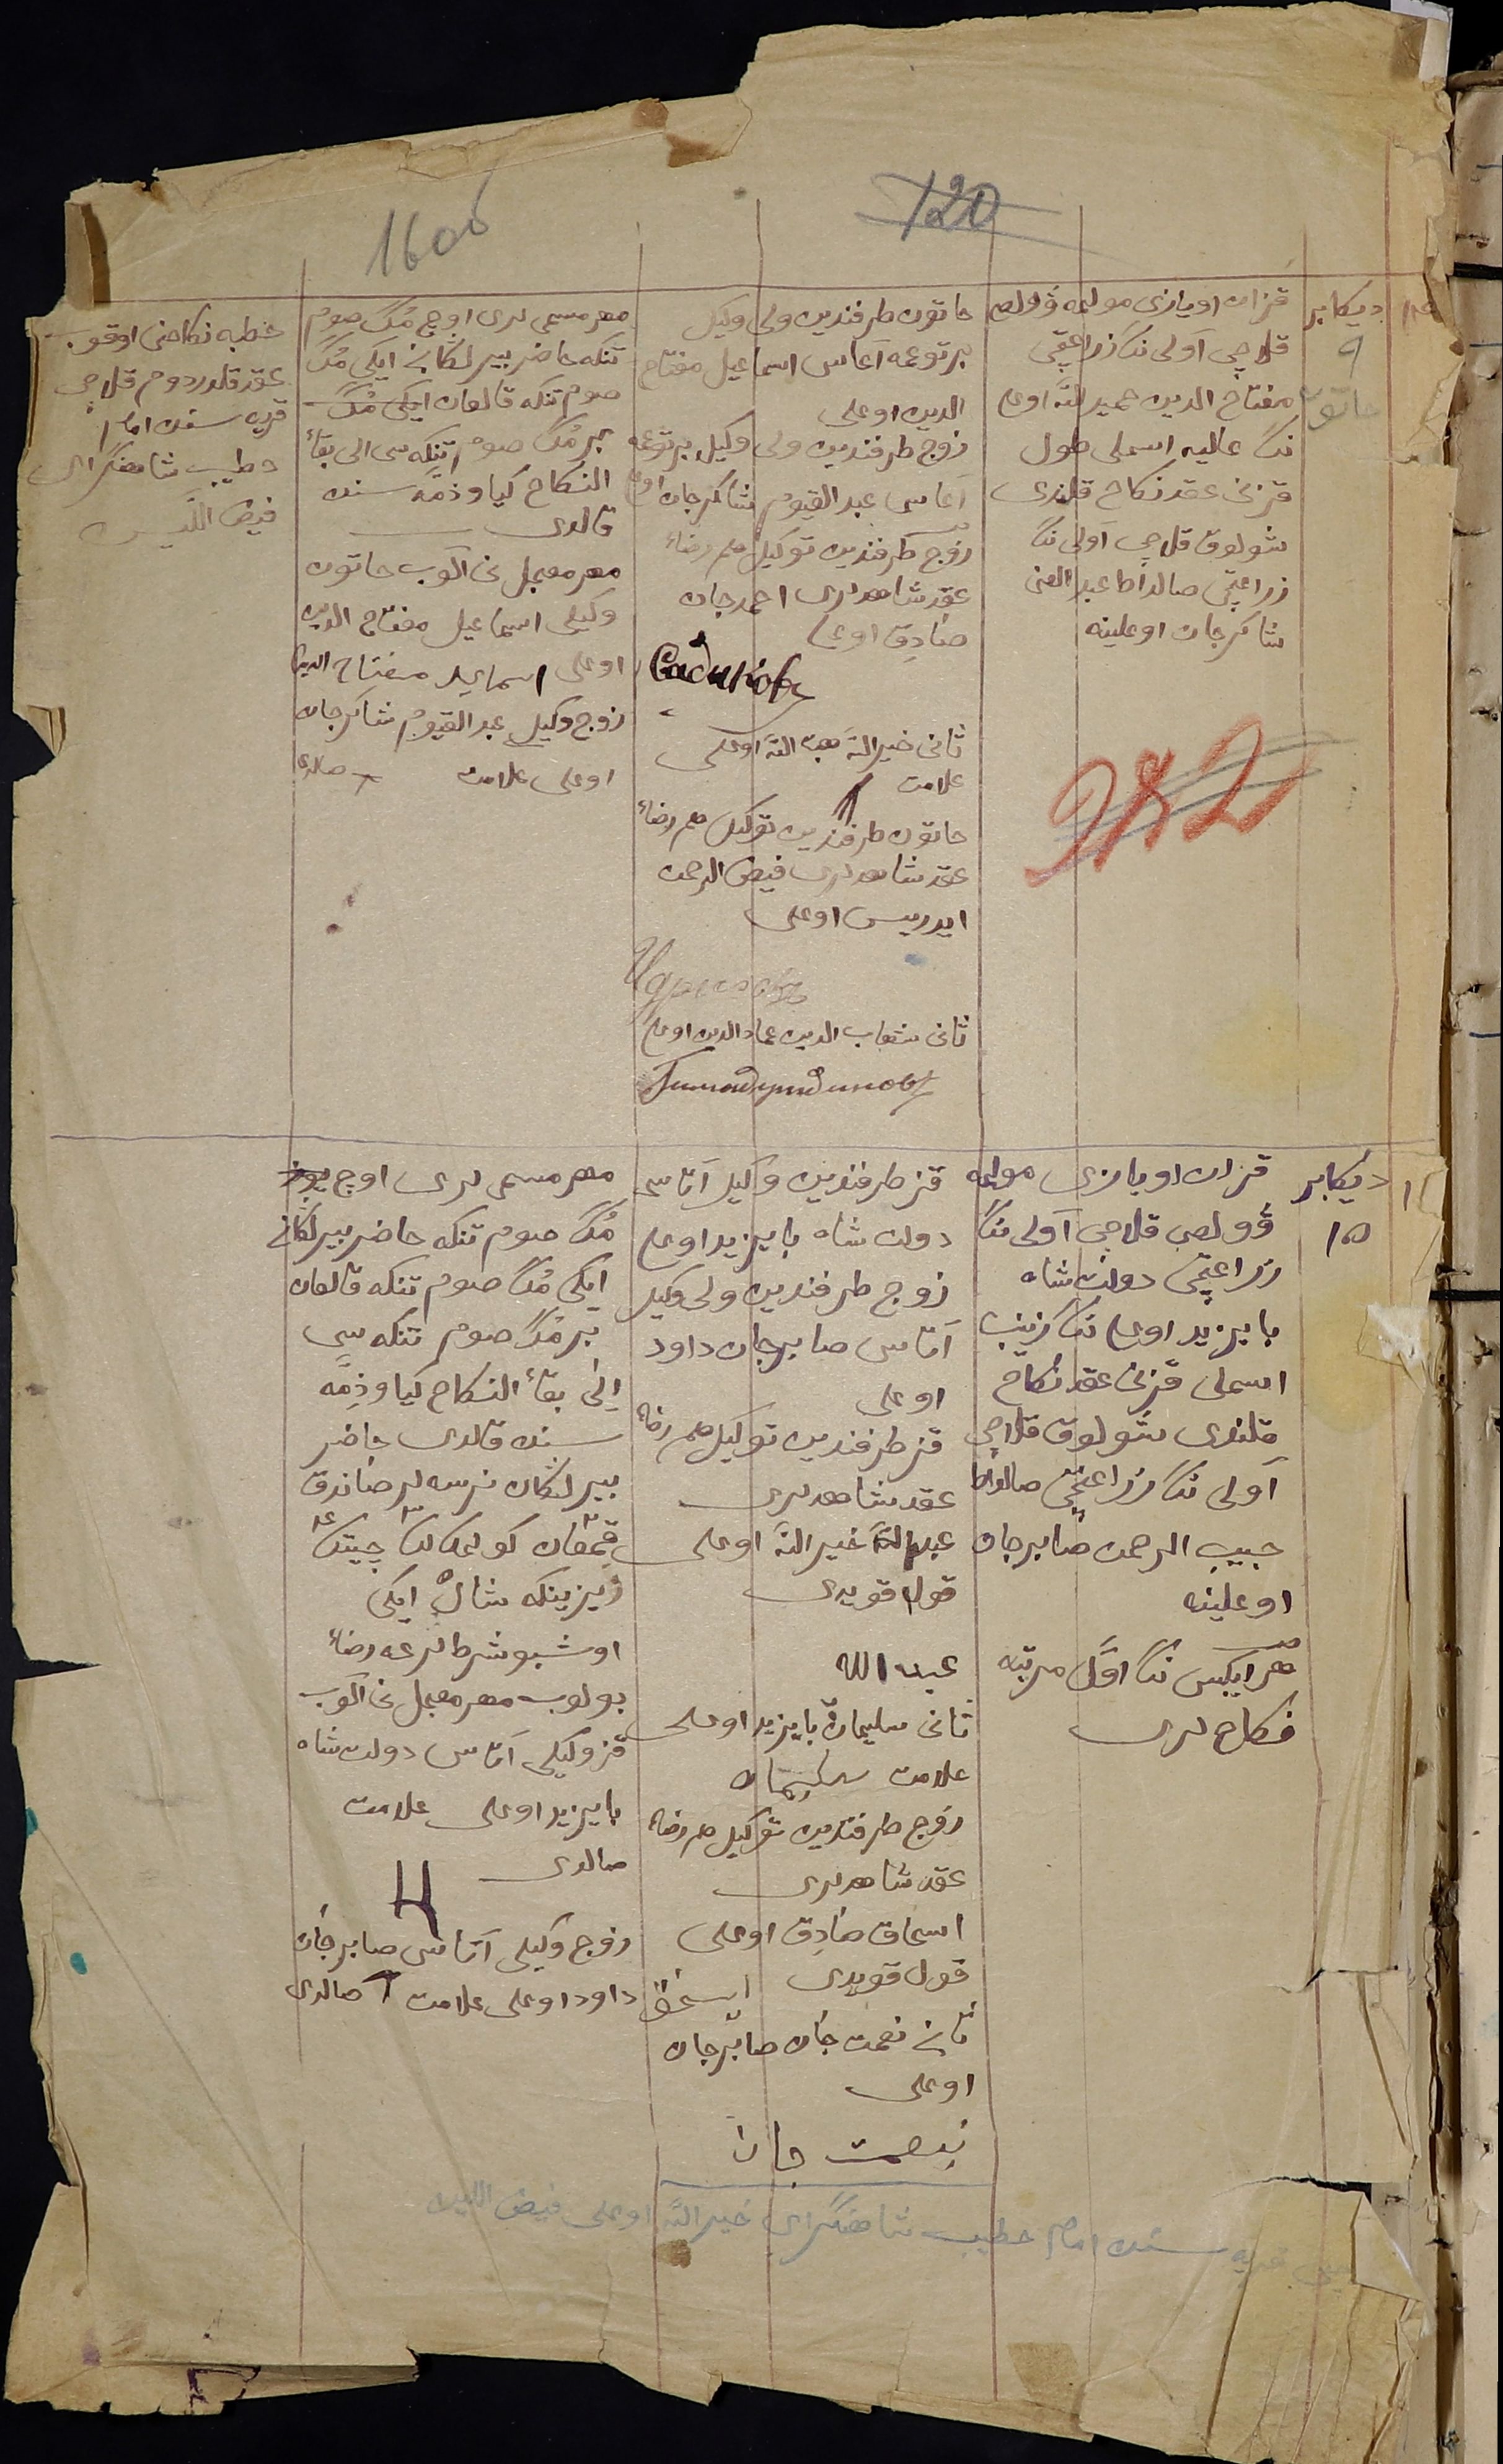 1606
120
دیکابر
۹
قزان اویازی مولمه ۋولص
قلاچی آولی ننک زراعتچی
مفتاح الدین حمیدالله اوغلی
خاتون
ننک عالیه اسملی طول
قزنی عقد نکاح قلندی
شولوق قلاچی آولی ننک
زراعتچی صالداط عبدالغنی
شاکرجان اوغلینه
982
خاتون طرفندین ولی وکیل
برتوغمه آغاسی اسماعیل مفتاح
الدین اوغلی
زوج طرفندین ولی وکیل برتوغمه
آغاسی عبدالقیوم شاکرجان اوغلی
زوج طرفندین توکیل هم رضاء
عقد شاهدلری احمدجان
صادق اوغلی
Садиковъ
ثانی خیرالله هبة الله اوغلی
علامت
خاتون طرفندین توکیل هم رضاء
عقد شاهدلری فیض الرحمن
ایدریس اوغلی
Идрисовъ
ثانی شهاب الدین عمادالدین اوغلی
Гимадутдиновъ
مهر مسمی لری اوچ مُنک صوم
تنکه حاضر بیرلکانی ایکی مُنک
صوم تنکه قالغان ایکی مُنک
بر مُنک صوم تنکه سی الی بقاء
النکاح کیاو ذمه سنده
قالدی
مهر معجل نی آلوب خاتون
وکیلی اسماعیل مفتاح الدین
اوغلی اسماعیل مفتاح الدین
زوج وکیلی عبدالقیوم شاکرجان
اوغلی علامت صالدی
خطبه نکاحنی اوقوب
عقد قلدردوم قلاچی
قریه سنده امام
خطیب شاهنگرای
فیض اللین
دیکابر
۱۵
قزان اویازی مولمه
ۋولصی قلاچی آولی ننک
زراعتچی دولت شاه
بایزید اوغلی ننک زینب
اسملی قزنی عقد نکاح
قلندی شولوق قلاچی
آولی ننک زراعتچی صالداط
حبیب الرحمن صابرجان
اوغلینه
هر ایکیسی ننک اوّل مرتبه
نکاح لری
قز طرفندین وکیل آتاسی
دولت شاه بایزید اوغلی
زوج طرفندین ولی وکیل
آتاسی صابرجان داود
اوغلی
قز طرفندین توکیل هم رضاء
عقد شاهدلری
عبدالله خیرالله اوغلی
قول قویدی
عبدالله
ثانی سلیمان بایزید اوغلی
علامت سلیمان
زوج طرفندین توکیل هم رضاء
عقد شاهدلری
اسحاق صادق اوغلی
قول قویدی اسحق
ثانی نعمت جان صابرجان
اوغلی
نعمت جان
مهر مسمی لری اوچ یوز
مُنک صوم تنکه حاضر بیرلکانی
ایکی مُنک صوم تنکه قالغان
بر مُنک صوم تنکه سی
اِلی بقاء النکاح کیاو ذمه
سنده قالدی حاضر
بیرلکان نرسه لر صاندق
شال ایکی
اوشبو شرطلرغه رضاء
بولوب مهر معجل نی آلوب
قز وکیلی آتاسی دولت شاه
بایزید اوغلی علامت
صالدی
زوج وکیلی آتاسی صابرجان
داود اوغلی علامت صالدی
قریه سنده امام خطیب شاهنگرای خیرالله اوغلی فیض اللین